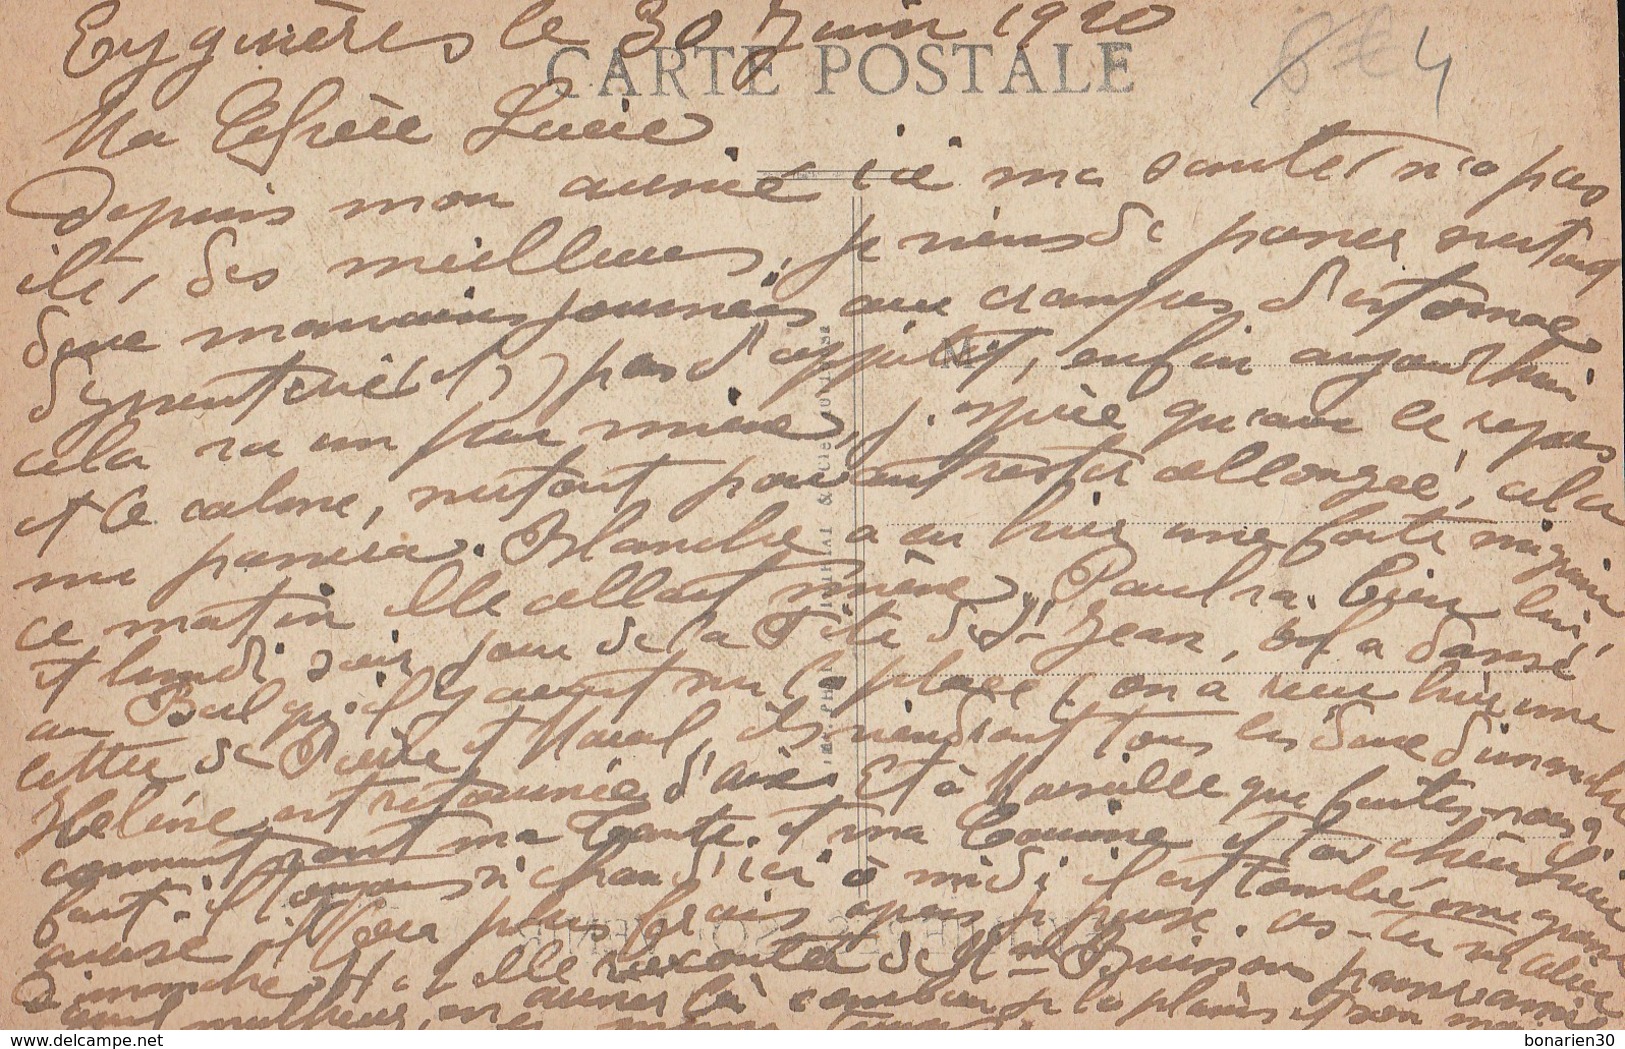 Eyguières le 30 Juin 1920
CARTE POSTALE
8€ 4
Ma Chère Lucie
Depuis mon arrivée ici ma santé n'a pas
été, des meilleures, je viens de passer surtout
deux mauvaises journées avec crampes d'estomac
dysenterie, pas d'appétit, enfin aujourd'hui
cela va un peu mieux, j'espère qu'avec le repos
et le calme, surtout pouvant rester allongée, cela
me passera. Blanche a eu hier une forte migraine
ce matin elle allait mieux. Paul va bien lui,
et lundi soir jour de la Fête de St-Jean, il a dansé
au Bal qu'il y avait sur la place, on a reçu hier une
lettre de Pierre et Marcel, ils viendront tous les deux dimanche
Hélène est retournée d'Aix. Et à Marseille que faites-vous?
comment vont ma tante et ma Cousine et ton chéri
fait-il toujours chaud, ici à midi il est tombé une grosse
averse il fera plus frais après je pense. as-tu vu
dimanche de Mme Buisson
malheur, combien je la plains et son
M.
www.delcampe.net
bonarien30